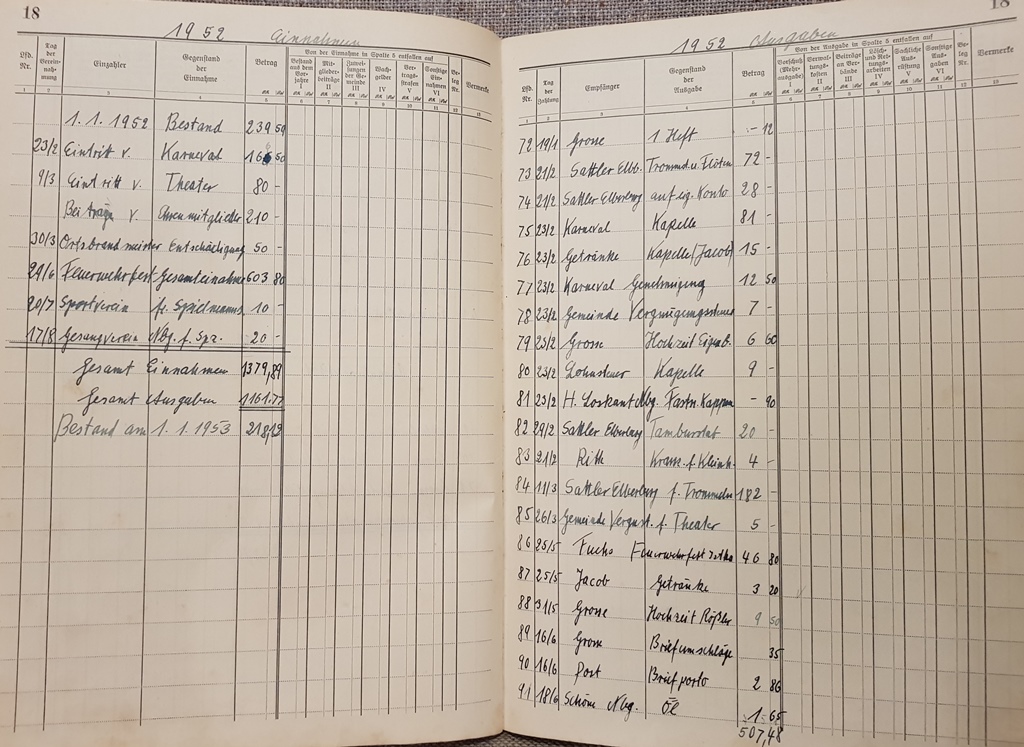 18
1952 Einnahmen
Von der Einnahme in Spalte 5 entfallen auf
Lfd. Nr. Tag der Vereinnahmung Einzahler Gegenstand der Einnahme Betrag Bestand aus dem Vorjahre I Mitgliederbeiträge II Zuweisungen der Gemeinde III Wachgelder IV Vertragsstrafen V Sonstige Einnahmen VI Beleg Nr. Bemerkte
1 2 3 4 5 6 7 8 9 10 11 12 13
1.1.1952 Bestand 239 59
23/2 Eintritt v. Karneval 166 50
9/3 Eintritt v. Theater 80 -
Beiträge v. Ehrenmitglieder 210 -
30/3 Ortsbrandmeister Entschädigung 50 -
29/6 Feuerwehrfest Gesamteinahme 603 80
20/7 Sportverein fr. Spielmanns 10 -
17/8 Gesangverein Nbg. f. Spz. 20 -
Gesamt Einnahmen 1379,89
Gesamt Ausgaben 1161.77
Bestand am 1.1.1953 218,13
18
1952 Ausgaben
Von der Ausgabe in Spalte 5 entfallen auf
Lfd. Nr. Tag der Zahlung Empfänger Gegenstand der Ausgabe Betrag Vorschuß (Mehrausgabe) I Verwaltungskosten II Beiträge an Verbände III Lösch- und Rettungsarbeiten IV Sachliche Ausrüstung V Sonstige Ausgaben VI Beleg Nr. Bemerkte
72 19/1 Grosse 1 Heft - 12
73 21/2 Sattler Elbb. Trommel u. Flöten 72 -
74 21/2 Sattler Elberberg auf eig. Konto 28 -
75 23/2 Karneval Kapelle 81 -
76 23/2 Getränke Kapelle (Jacob) 15 -
77 23/2 Karneval Genehmigung 12 50
78 23/2 Gemeinde Vergnügungssteuer 7 -
79 25/2 Grosse Hochzeit Eigenb. 6 60
80 23/2 Lohnsteuer Kapelle 9 -
81 23/2 H. Loskant Nbg. Fastn. Kappen - 90
82 29/2 Sattler Elberberg Tamburstat 20 -
83 21/2 Rith Kranz f. Kleinh. 4 -
84 11/3 Sattler Elberberg f. Trommeln 182 -
85 26/3 Gemeinde Vergnst. f. Theater 5 -
86 25/5 Fuchs Feuerwehrfest 46 80
87 25/5 Jacob Getränke 3 20
88 31/5 Grosse Hochzeit Rößler 9 50
89 16/6 Grosse Briefumschläge 35
90 16/6 Post Briefporto 2 86
91 18/6 Schöne Nbg. Öl 1 65
507,48